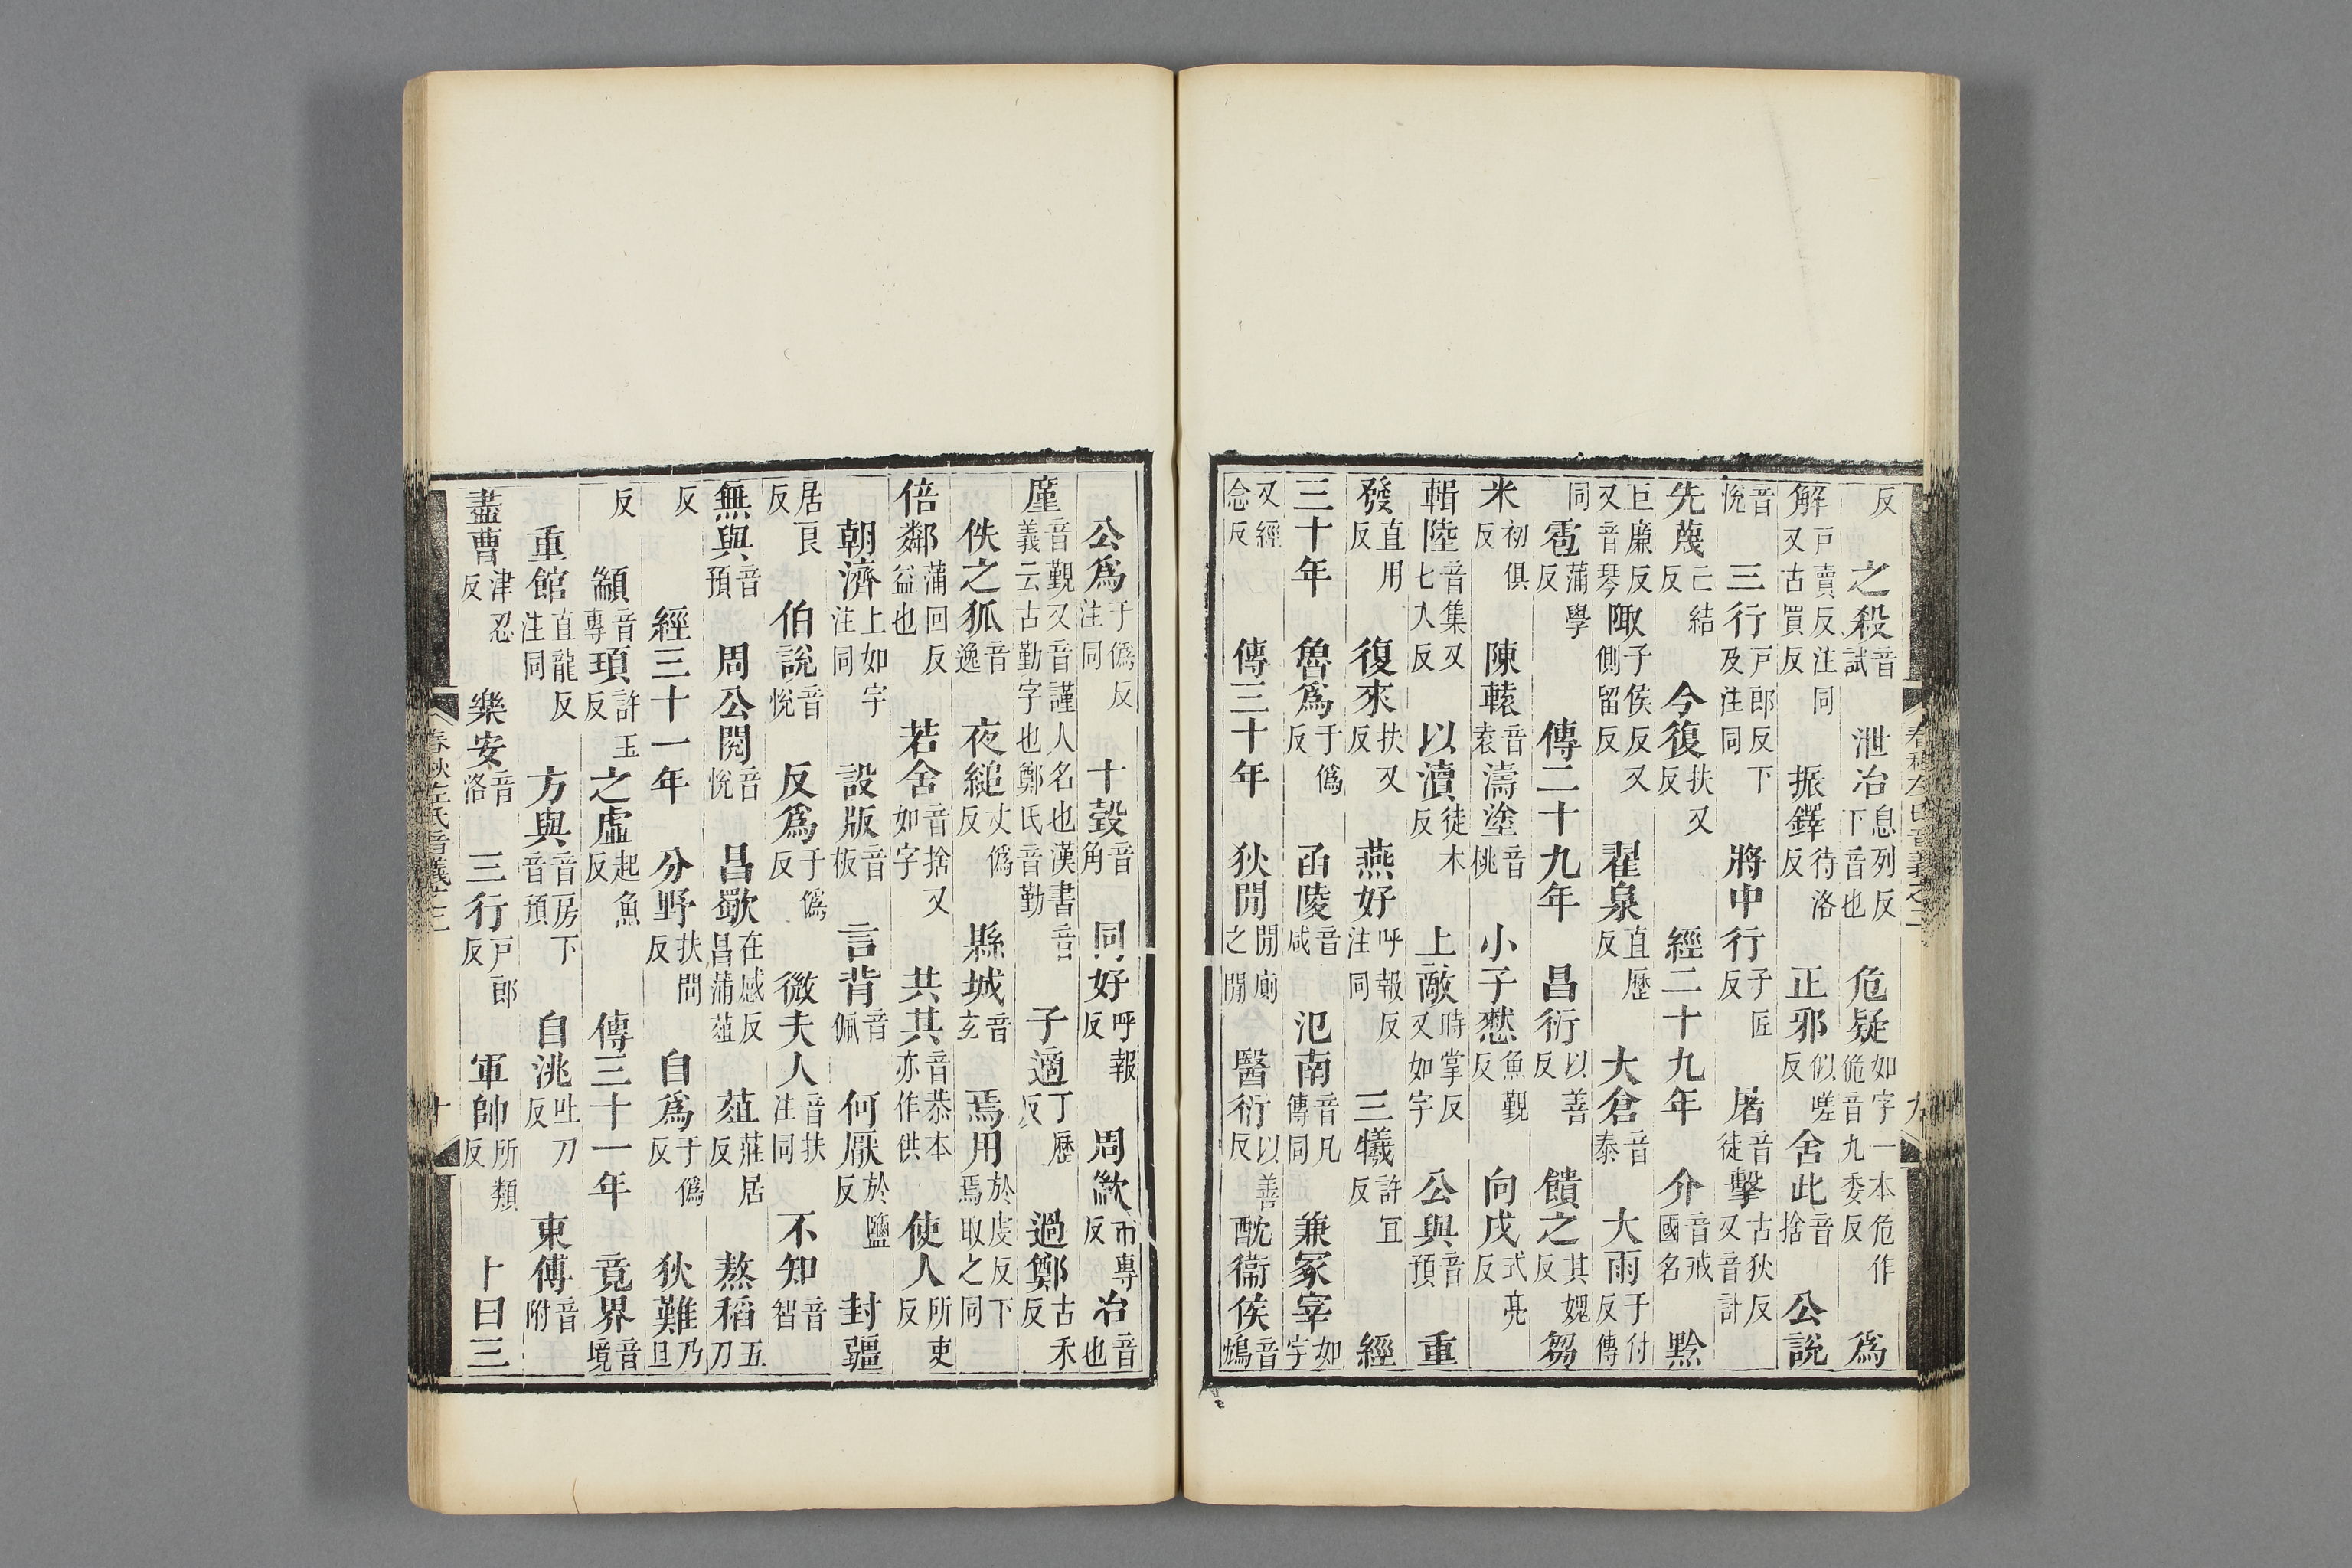 反　之殺音試　泄冶息列反下音也　危疑如字一本危作佹音九委反　爲
解戸賣反注同又古買反　振鐸待洛反　正邪似嗟反　舍此音捨　公說
音悅　三行戸郎反下及注同　將中行子匠反　屠音徒　擊古狄反又音計
先蔑亡結反　今復扶又反　經二十九年　介音戒國名　黥
巨廉反又音琴　陬子侯反又側留反　翟泉直歷反　大倉音泰　大雨于付反傳
同　雹蒲學反　傳二十九年　昌衍以善反　饋之其媿反　芻
米初俱反　陳轅音袁　濤塗音桃　小子憖魚覲反　向戌式亮反　重
輯陸音集又七入反　以瀆徒木反　上敵時掌反又如字　公與音預
發直用反　復來扶又反　燕好呼報反注同　三犧許宜反　經
三十年　魯爲于僞反　函陵音咸　氾南音凡傳同　兼冢宰如字
又經念反　傳三十年　狄閒閒廁之閒　醫衍以善反　酖衞侯音鴆
春秋左氏音義之二　九
公爲于僞反注同　十瑴音角　同好呼報反　周歂市專反　冶音也
廑音覲又音謹人名也漢書音義云古勤字也鄭氏音勤　子適丁歷反　過鄭古禾反
佚之狐音逸　夜縋丈僞反　縣城音玄　焉用於虔反下焉取之同
倍鄰蒲回反益也　若舍音捨又如字　共其音恭本亦作供　使人所吏反
朝濟上如字注同　設版音板　言背音佩　何厭於鹽反　封疆
居良反　伯說音悅　反爲于僞反　微夫人音扶注同　不知音智
無與音預　周公閱音悅　昌歜在感反昌蒲葅　葅莊居反　熬稻五刀
反　經三十一年　分野扶問反　自爲于僞反　狄難乃旦
反　顓音專　頊許玉反　之虛起魚反　傳三十一年　竟界音境
重館直龍反注同　方與音房下音預　自洮吐刀反　東傅音附
盡曹津忍反　樂安音洛　三行戸郎反　軍帥所類反　十曰三
春秋左氏音義之二　十